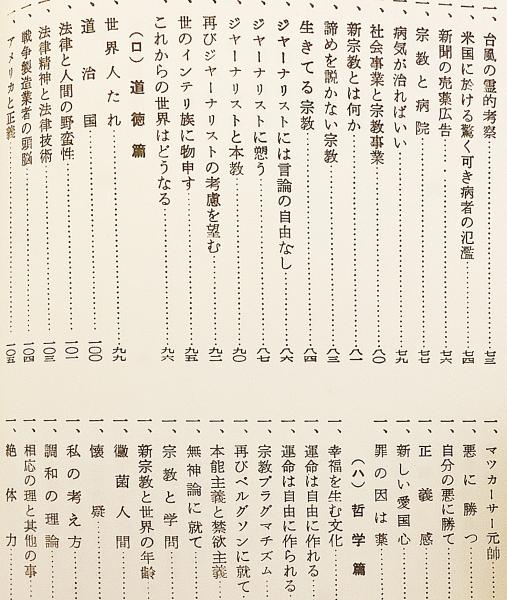 一、台風の霊的考察……七三
一、米国に於ける驚く可き病者の氾濫……七四
一、新聞の売薬広告……七六
一、宗教と病院……七七
一、病気が治ればいい……七九
一、社会事業と宗教事業……八〇
一、新宗教とは何か……八一
一、諦めを説かない宗教……八三
一、生きてる宗教……八四
一、ジャーナリストには言論の自由なし……八六
一、ジャーナリストに愬う……八七
一、ジャーナリストと本教……九〇
一、再びジャーナリストの考慮を望む……九二
一、世のインテリ族に物申す……九五
一、これからの世界はどうなる……九六
(ロ) 道徳篇
一、世界人たれ……九九
一、道治国……一〇〇
一、法律と人間の野蛮性……一〇一
一、法律精神と法律技術……一〇三
一、戦争製造業者の頭脳……一〇四
一、アメリカと正義……一〇五
一、マツカーサー元帥……
一、悪に勝つ……
一、自分の悪に勝て……
一、正義感……
一、新しい愛国心……
一、罪の因は薬……
(ハ) 哲学篇
一、幸福を生む文化……
一、運命は自由に作れる……
一、運命は自由に作られる……
一、宗教プラグマチズム……
一、再びベルグソンに就て……
一、本能主義と禁欲主義……
一、無神論に就て……
一、宗教と学問……
一、新宗教と世界の年齢……
一、黴菌人間……
一、懐疑……
一、私の考え方……
一、調和の理論……
一、相応の理と其他の事……
一、絶体力……